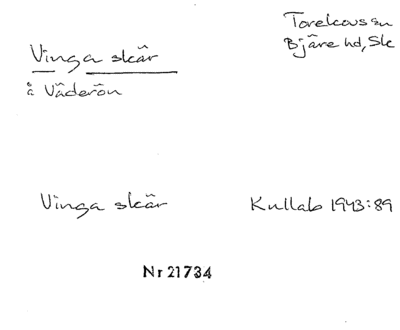 Vinga skär
å Väderön
Torekovs sn
Bjäre hd, Sk
Vinga skär
Kullab 1943:89
Nr 21734